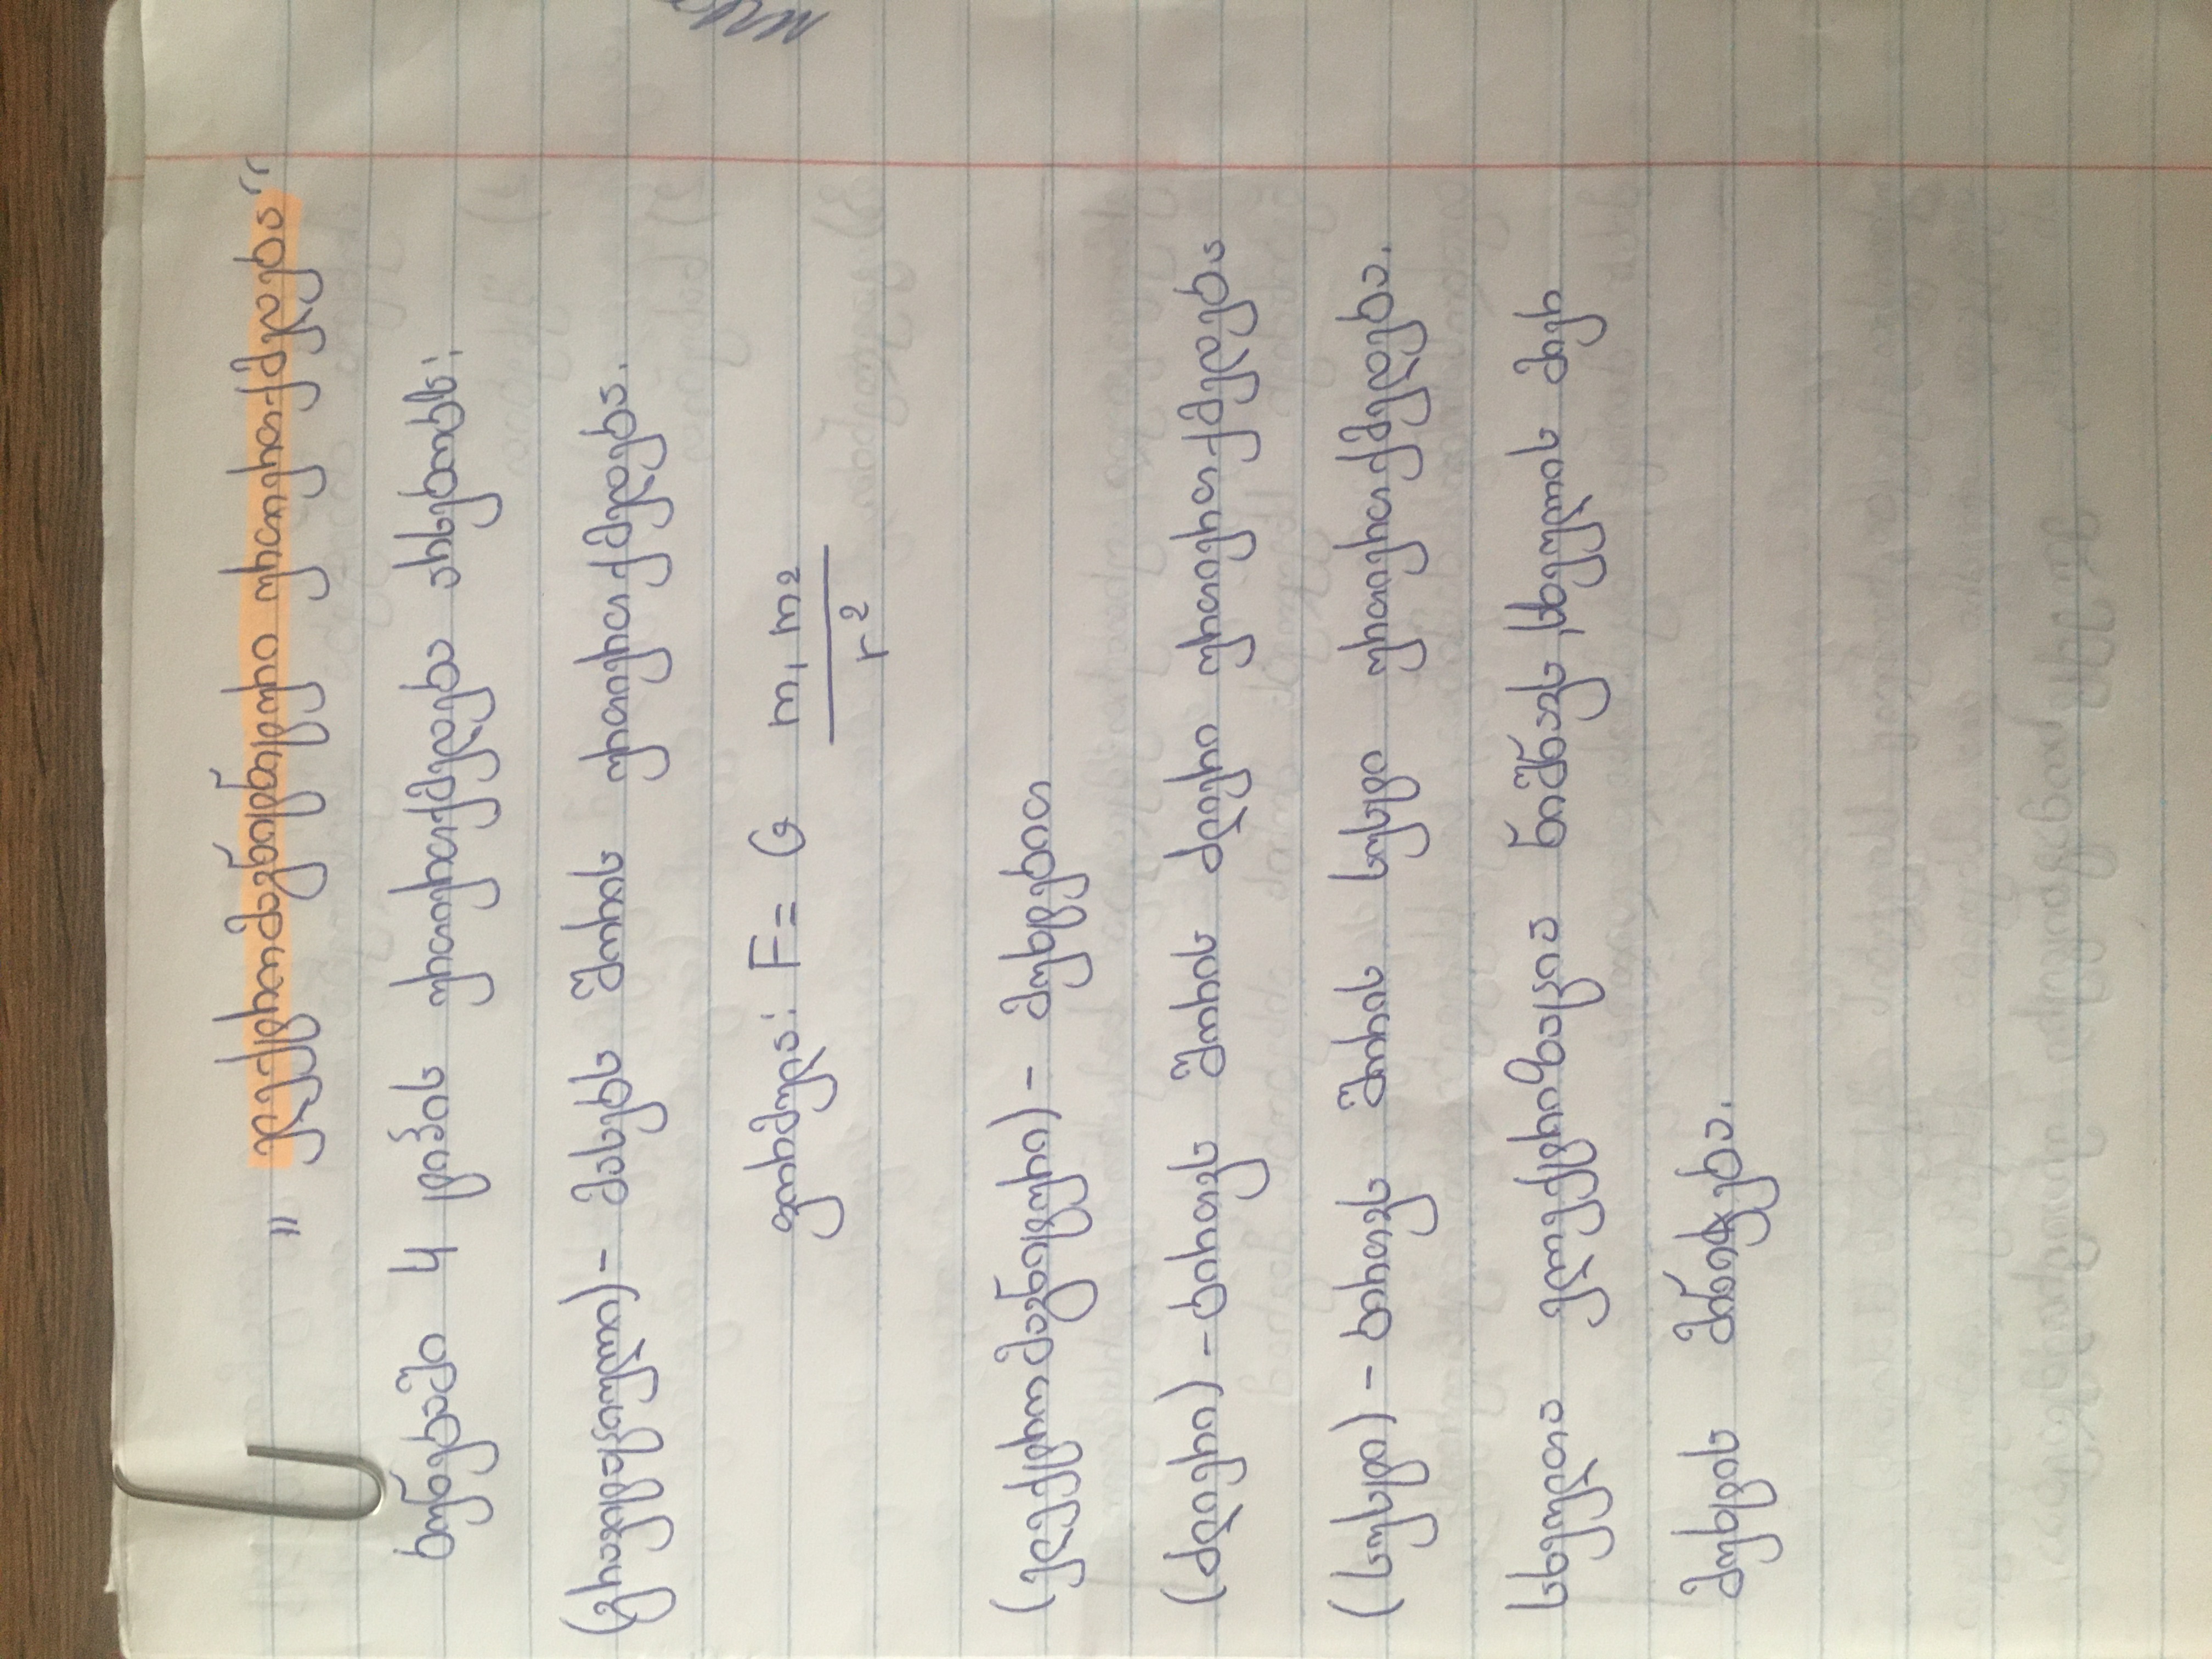 „ ელექტრომაგნიტნიტური ურთიერთქმედება“
ბუნებაში 4 ტიპის ურთიერთქმედება არსებობს:
(გრავიტაციული) - მასებს შორის ურთიერთქმედება.
ფორმულა: F = G m₁ m₂
r²
(ელექტრომაგნიტური) - მუხტებით
(ძლიერი) - ბირთვს შორის ძლიერი ურთიერთქმედება
(სუსტი) - ბირთვს შორის სუსტი ურთიერთქმედება.
სხეულთა ელექტრიზაცია ნიშნავს, სხეულის მიერ
მუხტის მინიჭება.